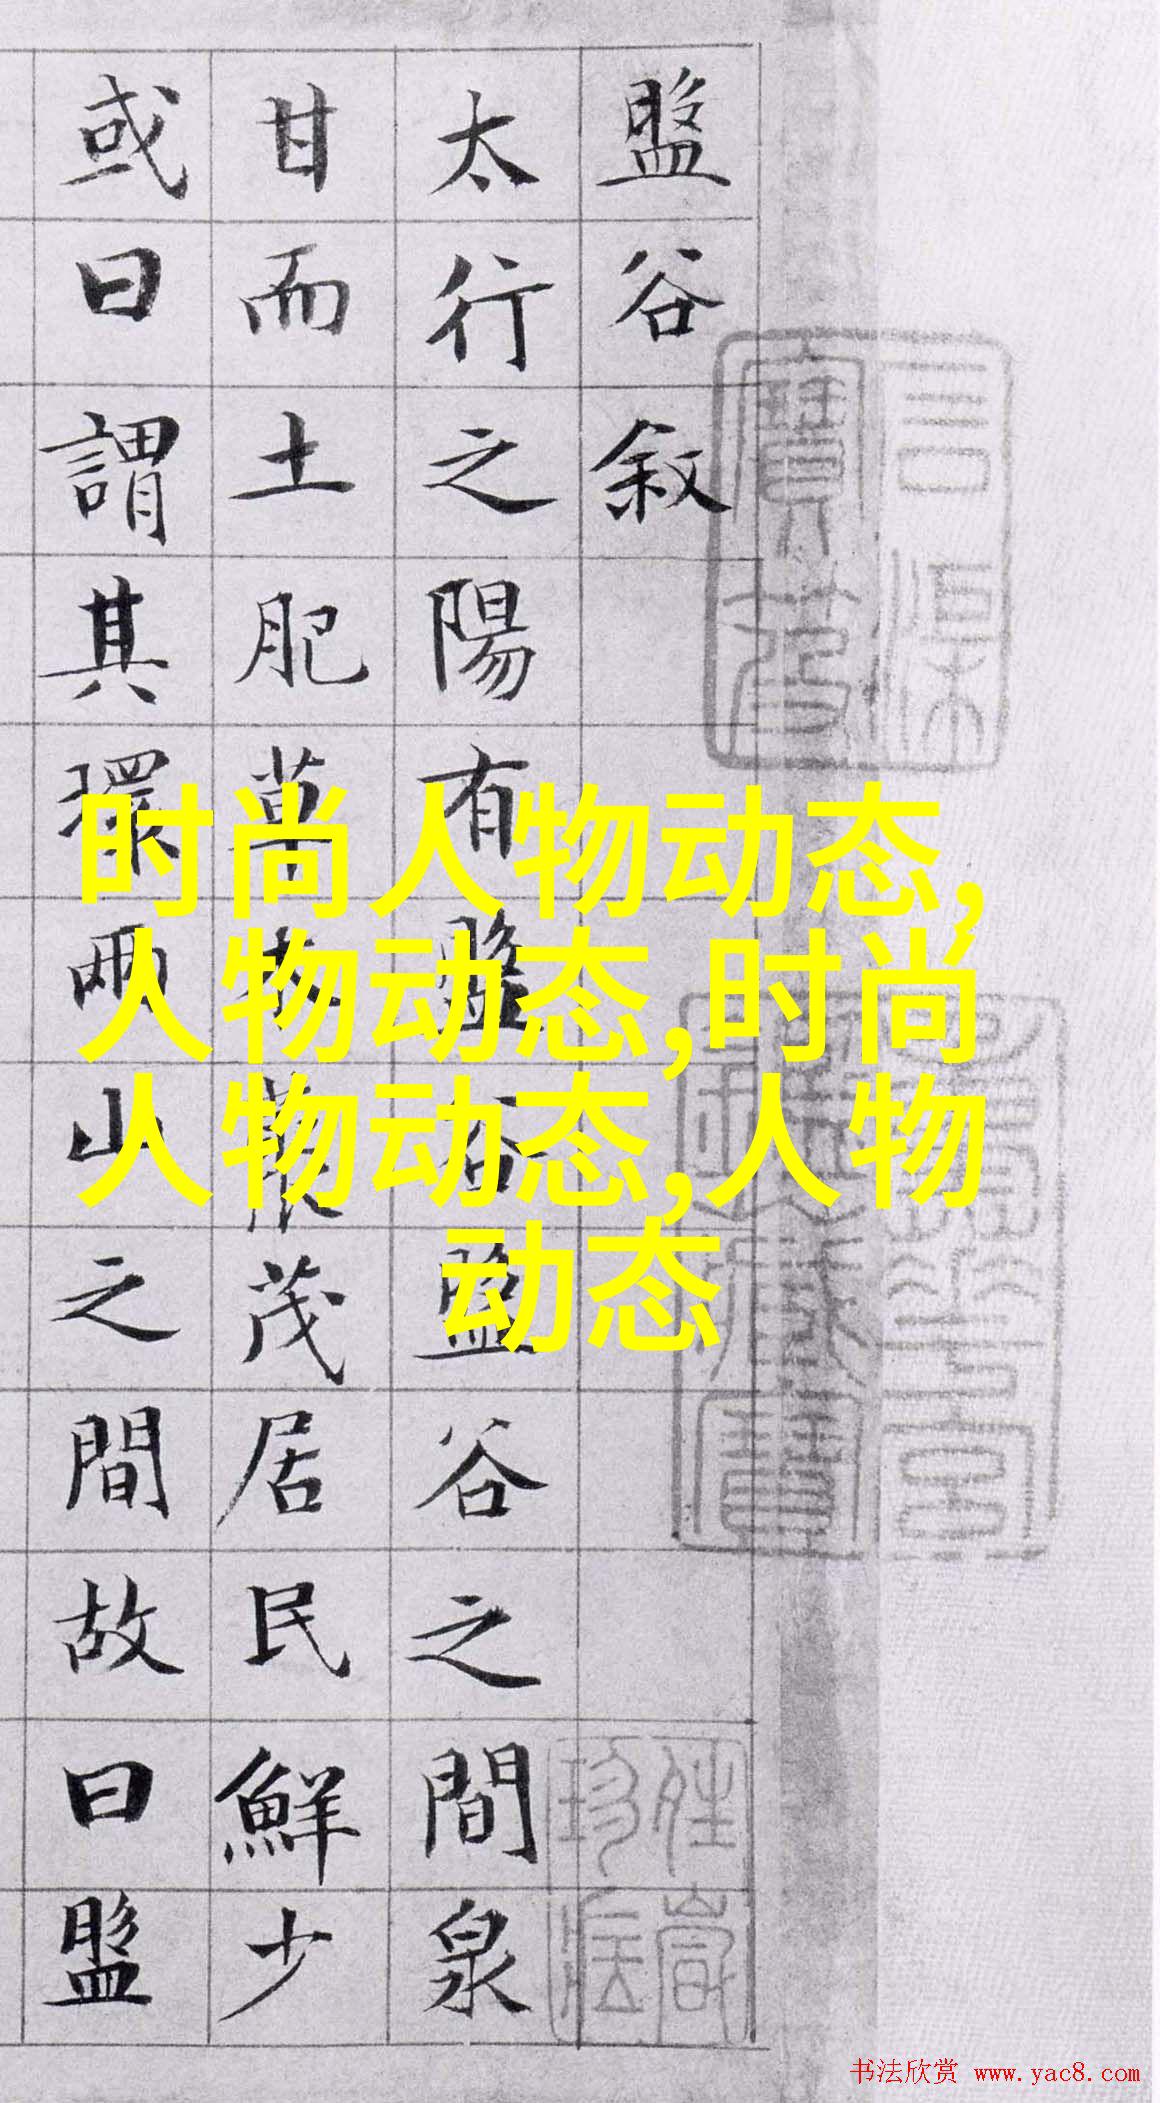 盤谷敘
太行之陽有盤谷盤谷之間泉
甘而土肥草木藂茂居民鮮少
或曰謂其環兩山之間故曰盤
时尚人物动态,
人物动态,时尚
人物动态,人物
动态
书法欣赏 www.yac8.com